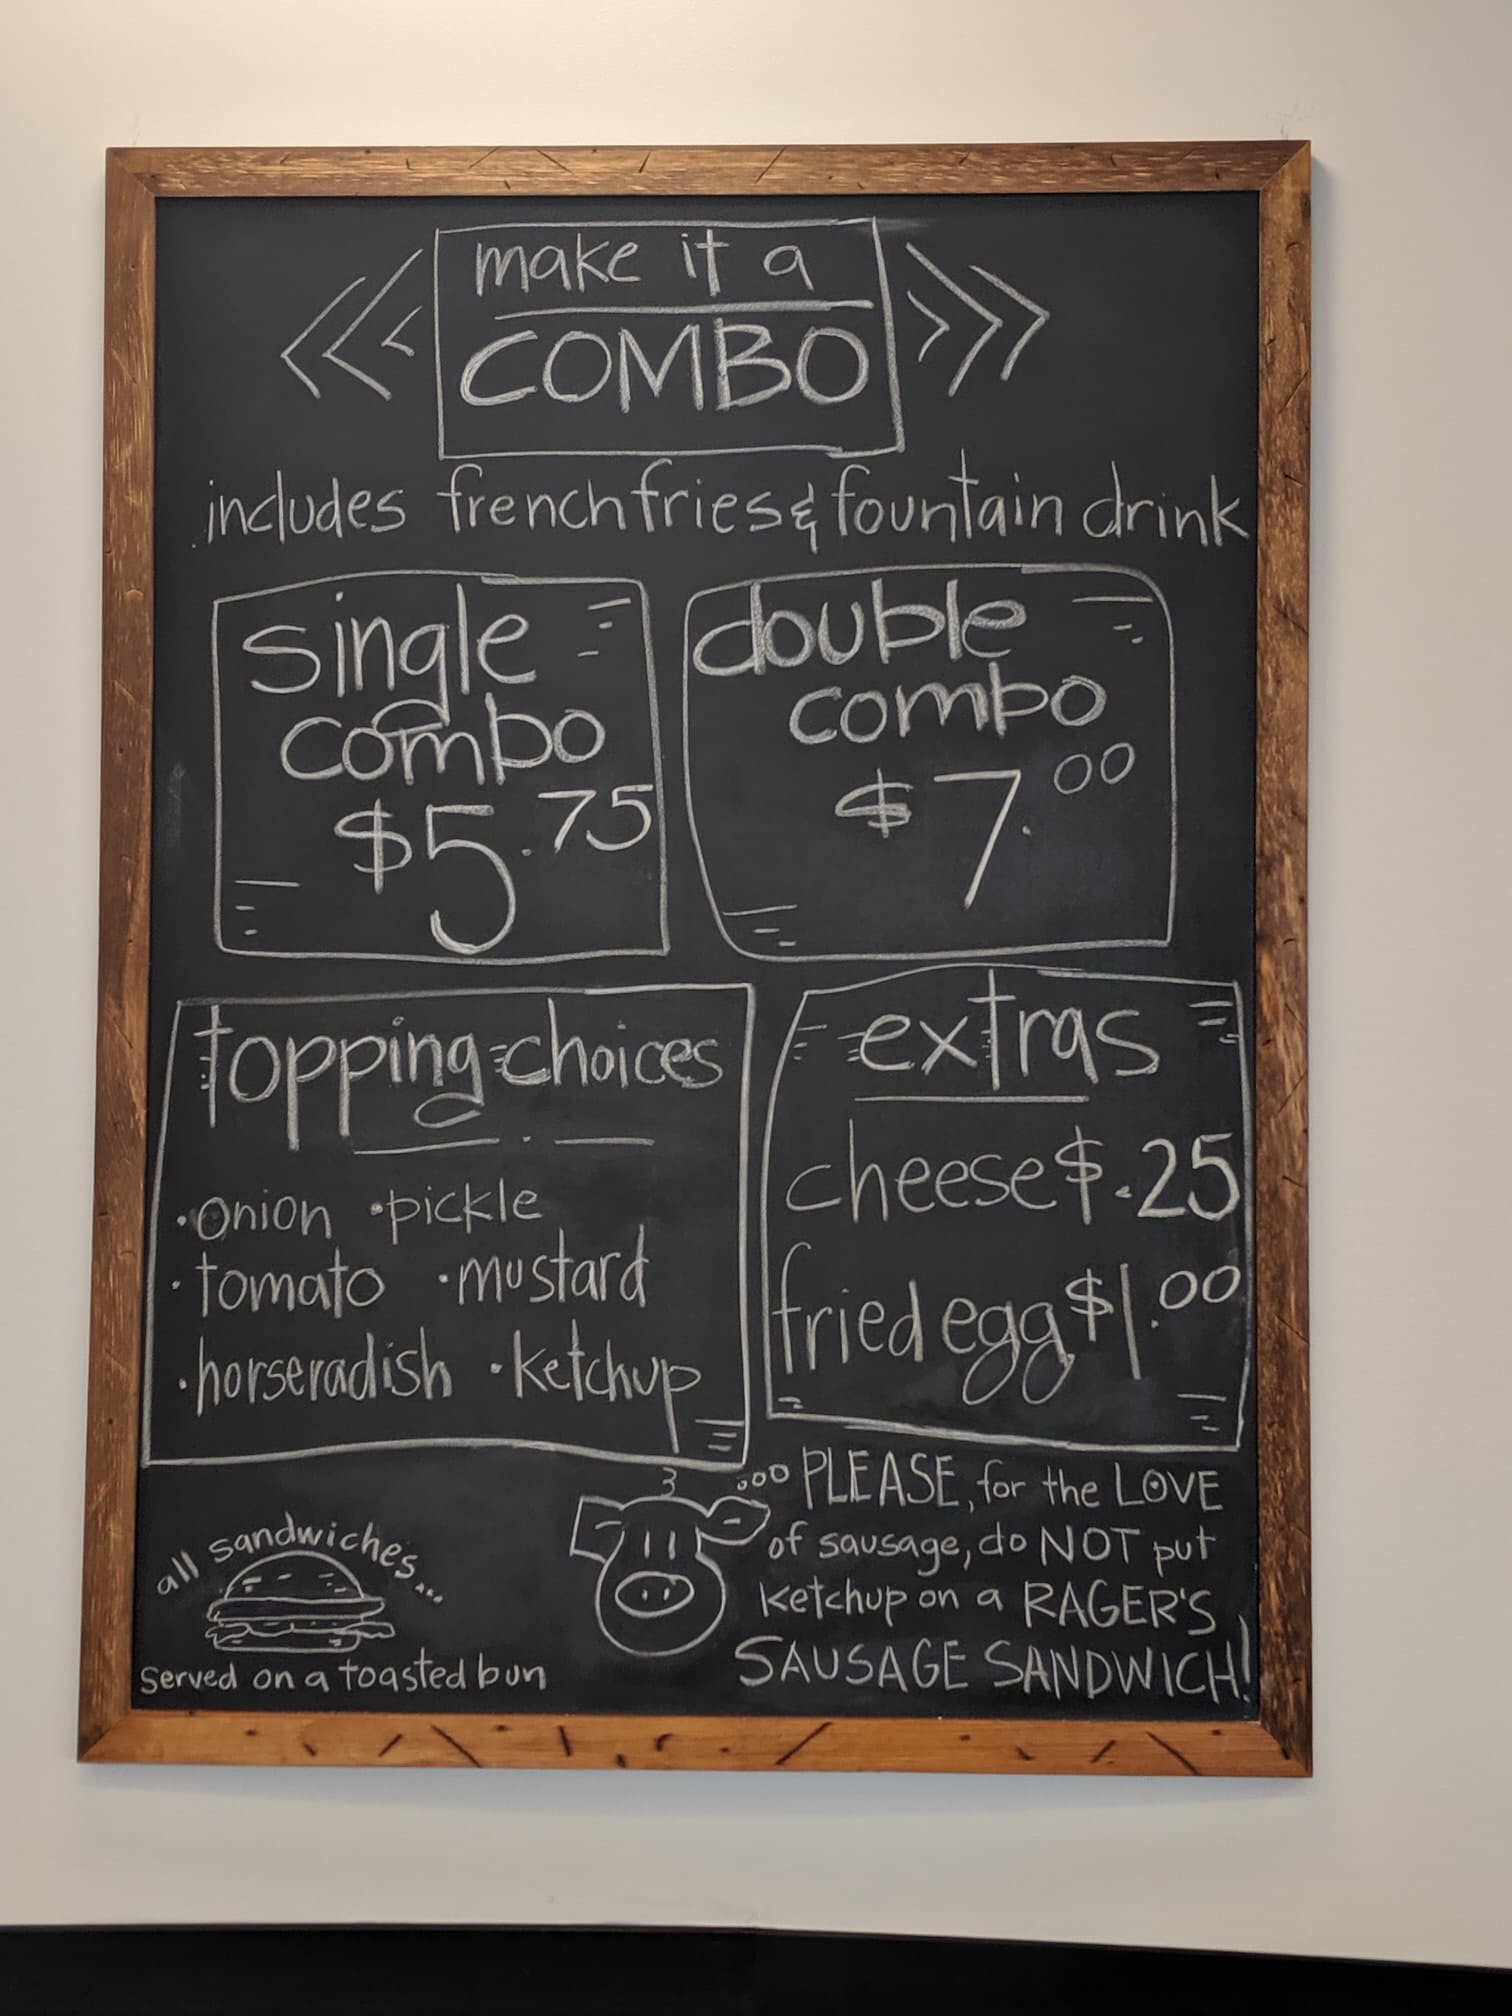 make it a
COMBO
includes french fries & fountain drink
single
combo
$5.75
double
combo
$7.00
topping choices
·onion ·pickle
·tomato ·mustard
·horseradish ·ketchup
extras
cheese $.25
fried egg $1.00
all sandwiches...
served on a toasted bun
ooo PLEASE, for the LOVE
of sausage, do NOT put
ketchup on a RAGER'S
SAUSAGE SANDWICH!